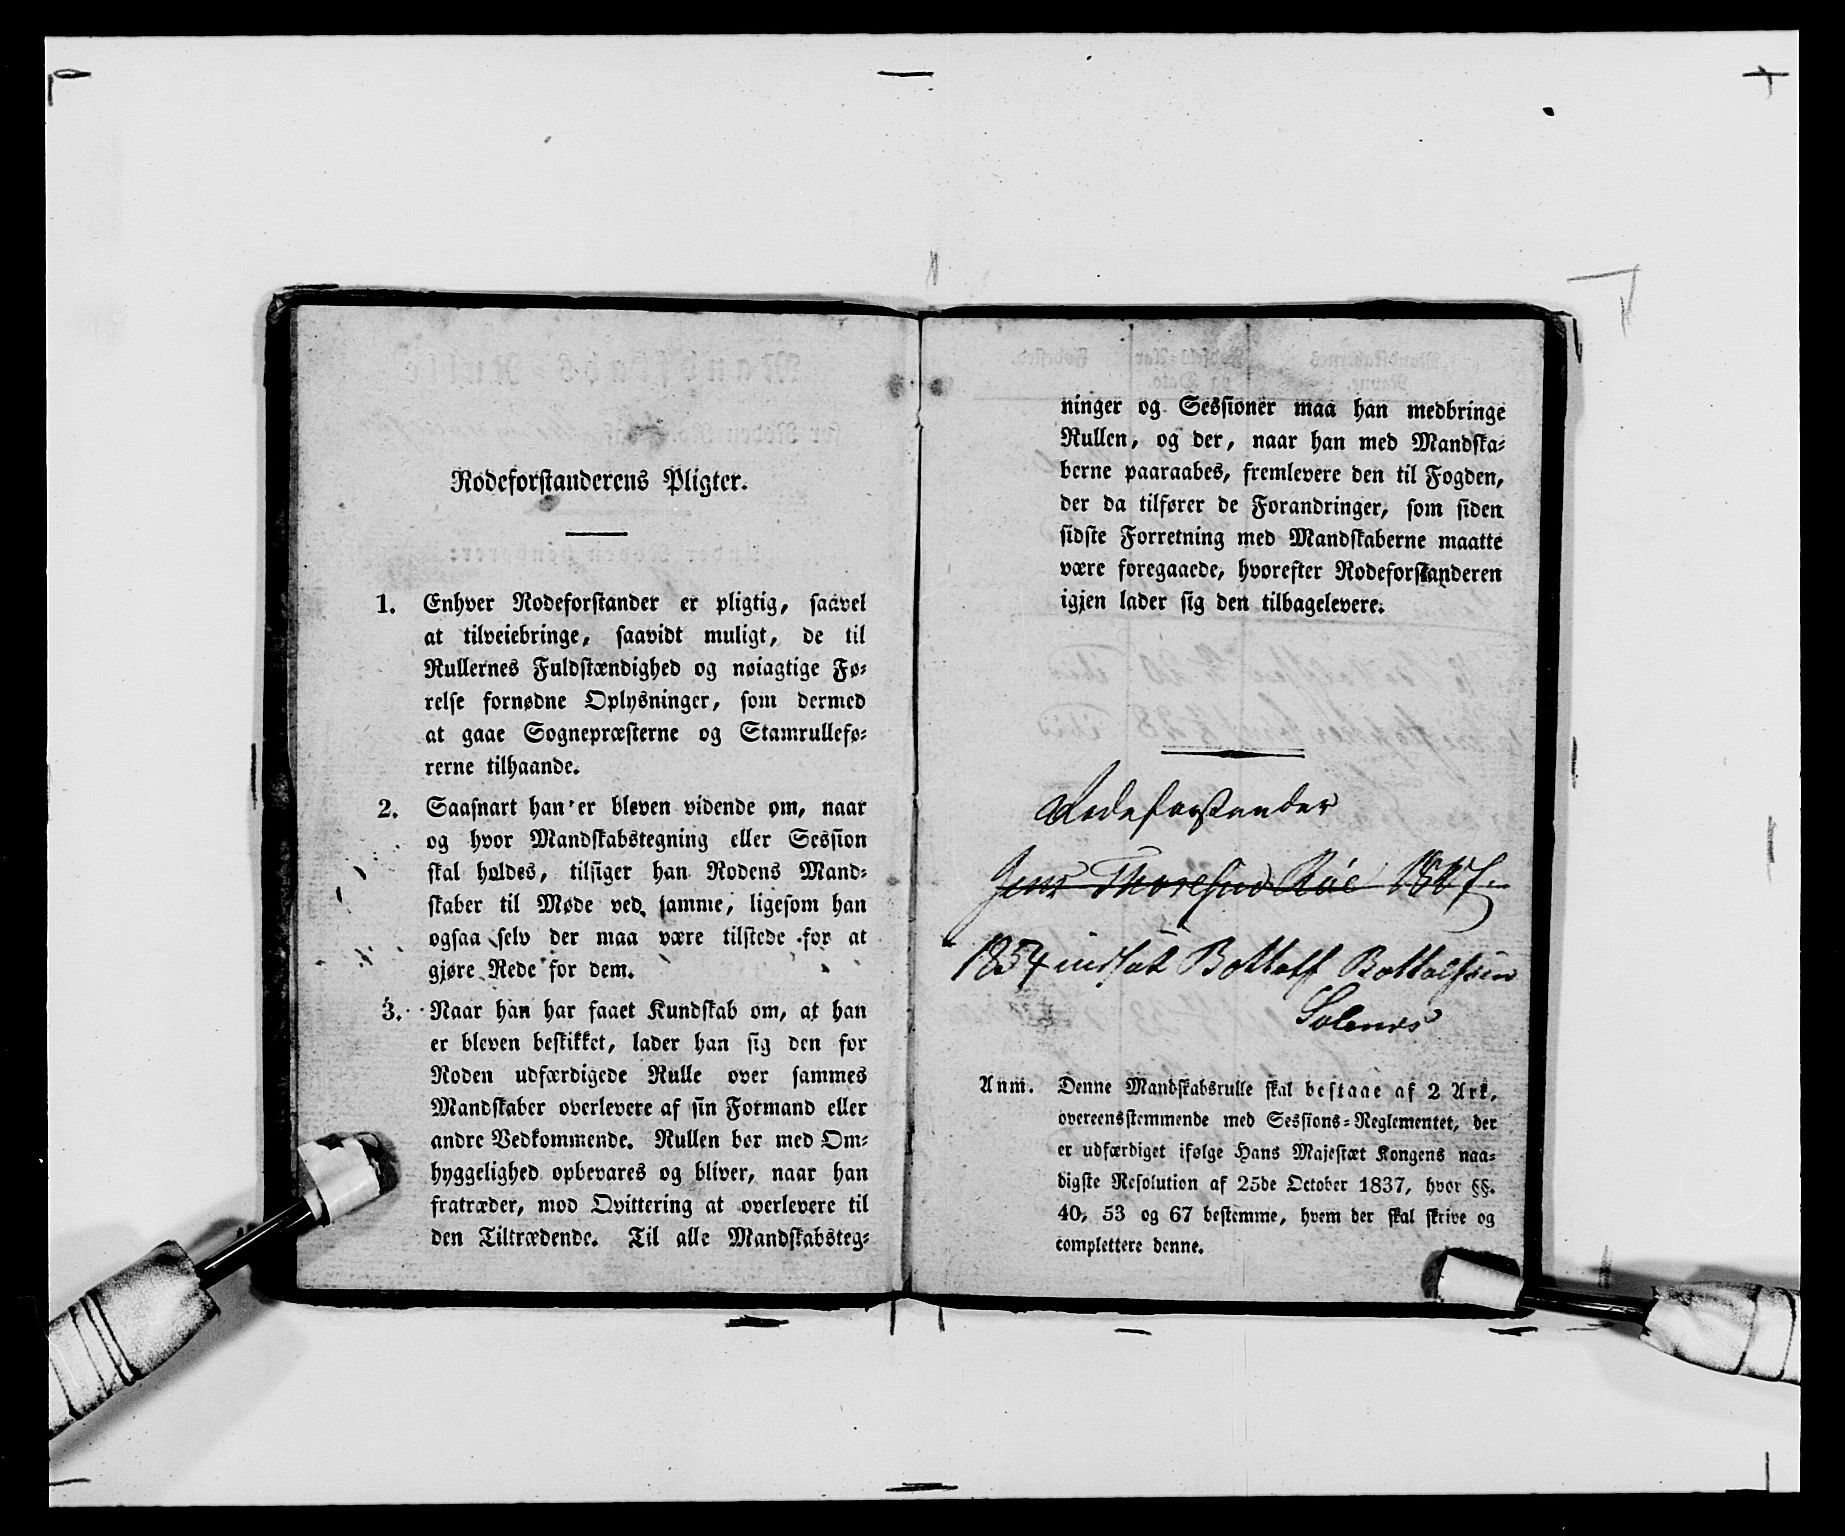 Rodeforstanderens Pligter.
1. Enhver Rodeforstander er pligtig, saavel
at tilveiebringe, saavidt muligt, de til
Rullernes Fuldstændighed og nøiagtige Fø-
relse fornødne Oplysninger, som dermed
at gaae Sognepræsterne og Stamrullefø-
rerne tilhaande.
2. Saasnart han er bleven vidende om, naar
og hvor Mandskabstegning eller Session
skal holdes, tilsiger han Rodens Mand-
skaber til Møde ved samme, ligesom han
ogsaa selv der maa være tilstede for at
gjøre Rede for dem.
3. Naar han har faaet Kundskab om, at han
er bleven beskikket, lader han sig den for
Roden udfærdigede Rulle over sammes
Mandskaber overlevere af sin Formand eller
andre Vedkommende. Rullen bør med Om-
hyggelighed opbevares og bliver, naar han
fratræder, mod Qvittering at overlevere til
den Tiltrædende. Til alle Mandskabsteg-
ninger og Sessioner maa han medbringe
Rullen, og der, naar han med Mandska-
berne paaraabes, fremlevere den til Fogden,
der da tilfører de Forandringer, som siden
sidste Forretning med Mandskaberne maatte
være foregaaede, hvorefter Rodeforstanderen
igjen lader sig den tilbagelevere.
Rodeforstander
Jens Thoresen
1854 indsat Bottolf Bottolfsen
Solenes
Anm. Denne Mandskabsrulle skal bestaae af 2 Ark,
overeensstemmende med Sessions-Reglementet, der
er udfærdiget ifølge Hans Majestæt Kongens naa-
digste Resolution af 25de October 1837, hvor §§.
40, 53 og 67 bestemme, hvem der skal skrive og
complettere denne.